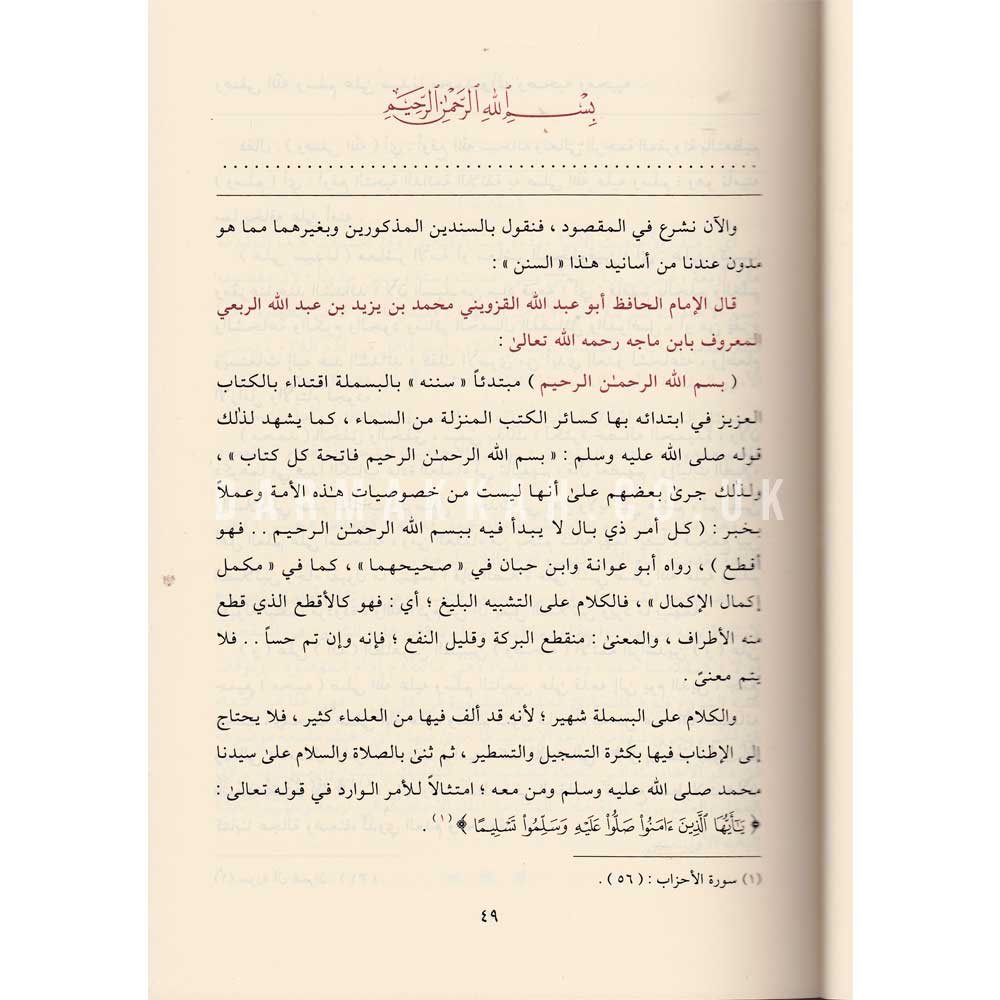 بِسْمِ اللهِ الرَّحْمٰنِ الرَّحِيْمِ
والآن نشرع في المقصود ، فنقول بالسندين المذكورين وبغيرهما مما هو
مدون عندنا من أسانيد هـٰذا « السنن » :
قال الإمام الحافظ أبو عبد الله القزويني محمد بن يزيد بن عبد الله الربعي
المعروف بابن ماجه رحمه الله تعالىٰ :
( بسم الله الرحمـٰن الرحيم ) مبتدئاً « سننه » بالبسملة اقتداء بالكتاب
العزيز في ابتدائه بها كسائر الكتب المنزلة من السماء ، كما يشهد لذٰلك
قوله صلى الله عليه وسلم : « بسم الله الرحمـٰن الرحيم فاتحة كل كتاب » ،
ولذٰلك جرىٰ بعضهم علىٰ أنها ليست من خصوصيات هـٰذه الأمة وعملاً
بخبر : ( كل أمر ذي بال لا يبدأ فيه ببسم الله الرحمـٰن الرحيم . . فهو
أقطع ) ، رواه أبو عوانة وابن حبان في « صحيحهما » ، كما في « مكمل
إكمال الإكمال » ، فالكلام على التشبيه البليغ ؛ أي : فهو كالأقطع الذي قطع
منه الأطراف ، والمعنىٰ : منقطع البركة وقليل النفع ؛ فإنه وإن تم حساً . . فلا
يتم معنىً .
والكلام على البسملة شهير ؛ لأنه قد ألف فيها من العلماء كثير ، فلا يحتاج
إلى الإطناب فيها بكثرة التسجيل والتسطير ، ثم ثنىٰ بالصلاة والسلام علىٰ سيدنا
محمد صلى الله عليه وسلم ومن معه ؛ امتثالاً للأمر الوارد في قوله تعالىٰ :
﴿ يَـٰٓأَيُّهَا ٱلَّذِينَ ءَامَنُوا۟ صَلُّوا۟ عَلَيْهِ وَسَلِّمُوا۟ تَسْلِيمًا ﴾ (١) .
(١) سورة الأحزاب : ( ٥٦ ) .
٤٩
DARMAKKAH.CO.UK